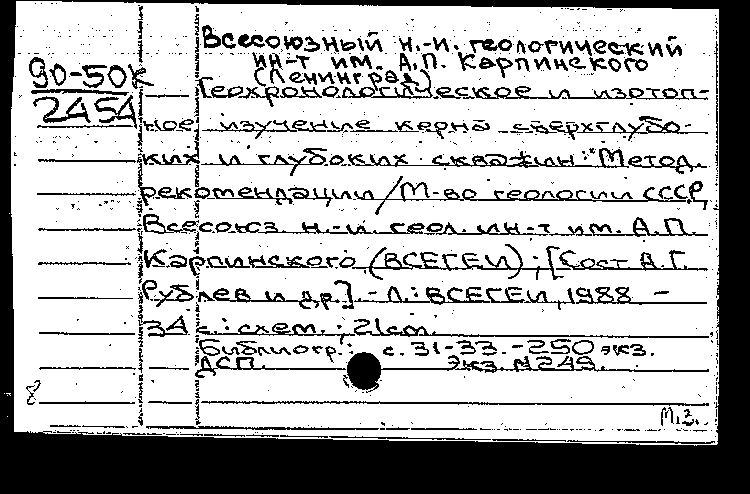 Всесоюзный н.-и. геологический
ин-т им. А.П. Карпинского
(Ленинград)
90-50к
2454
Геохронологическое и изотоп-
ное изучение керна сверхглубо-
ких и глубоких скважин: Метод.
рекомендации / М-во геологии СССР,
Всесоюз. н.-и. геол. ин-т им. А.П.
Карпинского (ВСЕГЕИ); [Сост. А.Г.
Рублев и др.]. - Л.: ВСЕГЕИ, 1988. -
34 с.: схем.; 21 cm.
Библиогр.: с. 31-33. - 250 экз.
ДСП. Экз. №249.
8
М.З.